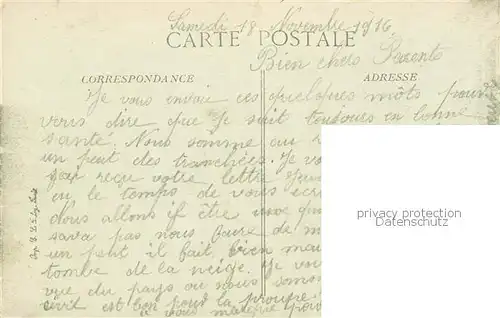 Samedi 18 Novembre 1916
CARTE POSTALE
Bien chers Parents
CORRESPONDANCE
ADRESSE
Je vous envoie ces quelques mots pour
vous dire que Je suit toujours en bonne
santé. Nous somme au r
un peut des tranchées. Je vo
pas reçu votre lettre
ou le temps de vous écri
nous allons il être
sava pas nous faire de m
un petit il fait bien mau
tombe de la neige. Je vou
vue du pays ou nous somm
civil est bon pour la troupe
Je vous marque
privacy protection
Datenschutz